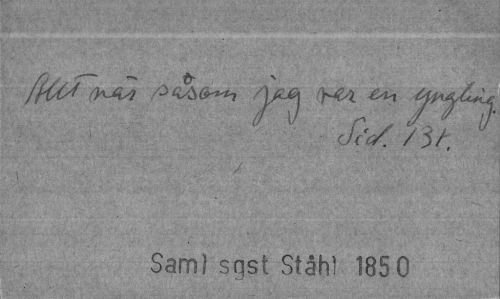 Allt när såsom jag var en yngling.
Sid. 131.
Saml sgst Ståhl 1850